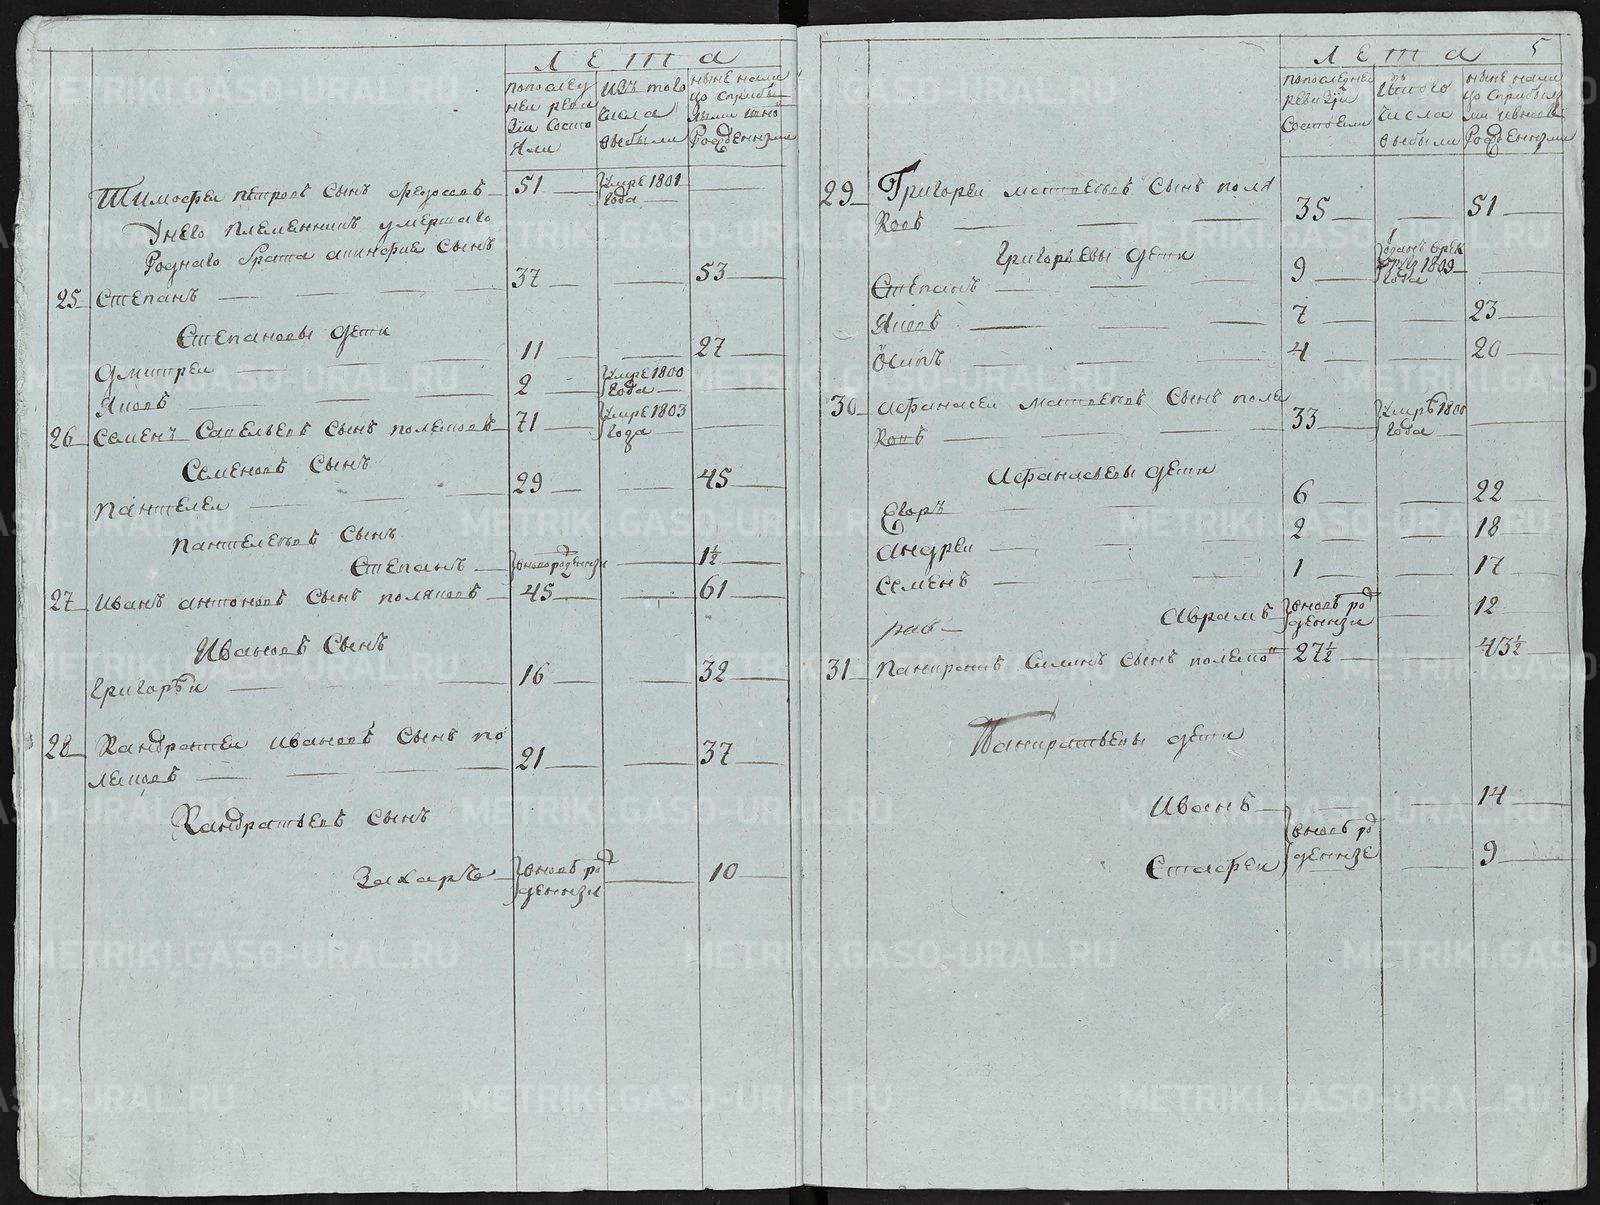 Лета
попослед
ней реви
зіи состо
яли
изъ того
числа
выбыли
ныне нали
цо сприбы
лыми ино
рожденными
Тимофеи петровъ сынъ федосеевъ 51 умре 1801
года
Унего племенникъ умершаго
роднаго брата сынъ
25 Степанъ 37 53
Степановы дети
Дмитреи 11 27
Яковъ 2 умре 1800
года
26 Семенъ Савельевъ сынъ полековъ 71 умре 1803
года
Семеновъ сынъ
Пантелеи 29 45
Пантелеевъ сынъ
Степанъ 1½
27 Иванъ антоновъ сынъ поляковъ 45 61
Ивановъ сынъ
Григореи 16 32
28 Кандратеи ивановъ сынъ по
лековъ 21 37
Кандратьевъ сынъ
Захаръ вновь ро
денныи 10
Лета 5
попоследнеи
ревизіи
состояли
изъ того
числа
выбыли
ныне нали
цо сприбыл
ми ивновь
рожденными
29 Григореи матвеевъ сынъ поля
ковъ 35 51
Григорьевы дети
Степанъ 9 отданъ врек
руты 1809
года
Яковъ 7 23
Осипъ 4 20
30 Афанасеи матвеевъ сынъ поле
ковъ 33 умръ 1800
года
Афанасьевы дети
Егоръ 6 22
Андреи 2 18
Семенъ 1 17
Аврамъ вновь ро
денныи 12
31 Панкратъ Силинъ сынъ полеко 27½ 43½
Панкратьевы дети
Иванъ 14
вновь ро
денные
Стафеи 9
METRIKI.GASO-URAL.RU